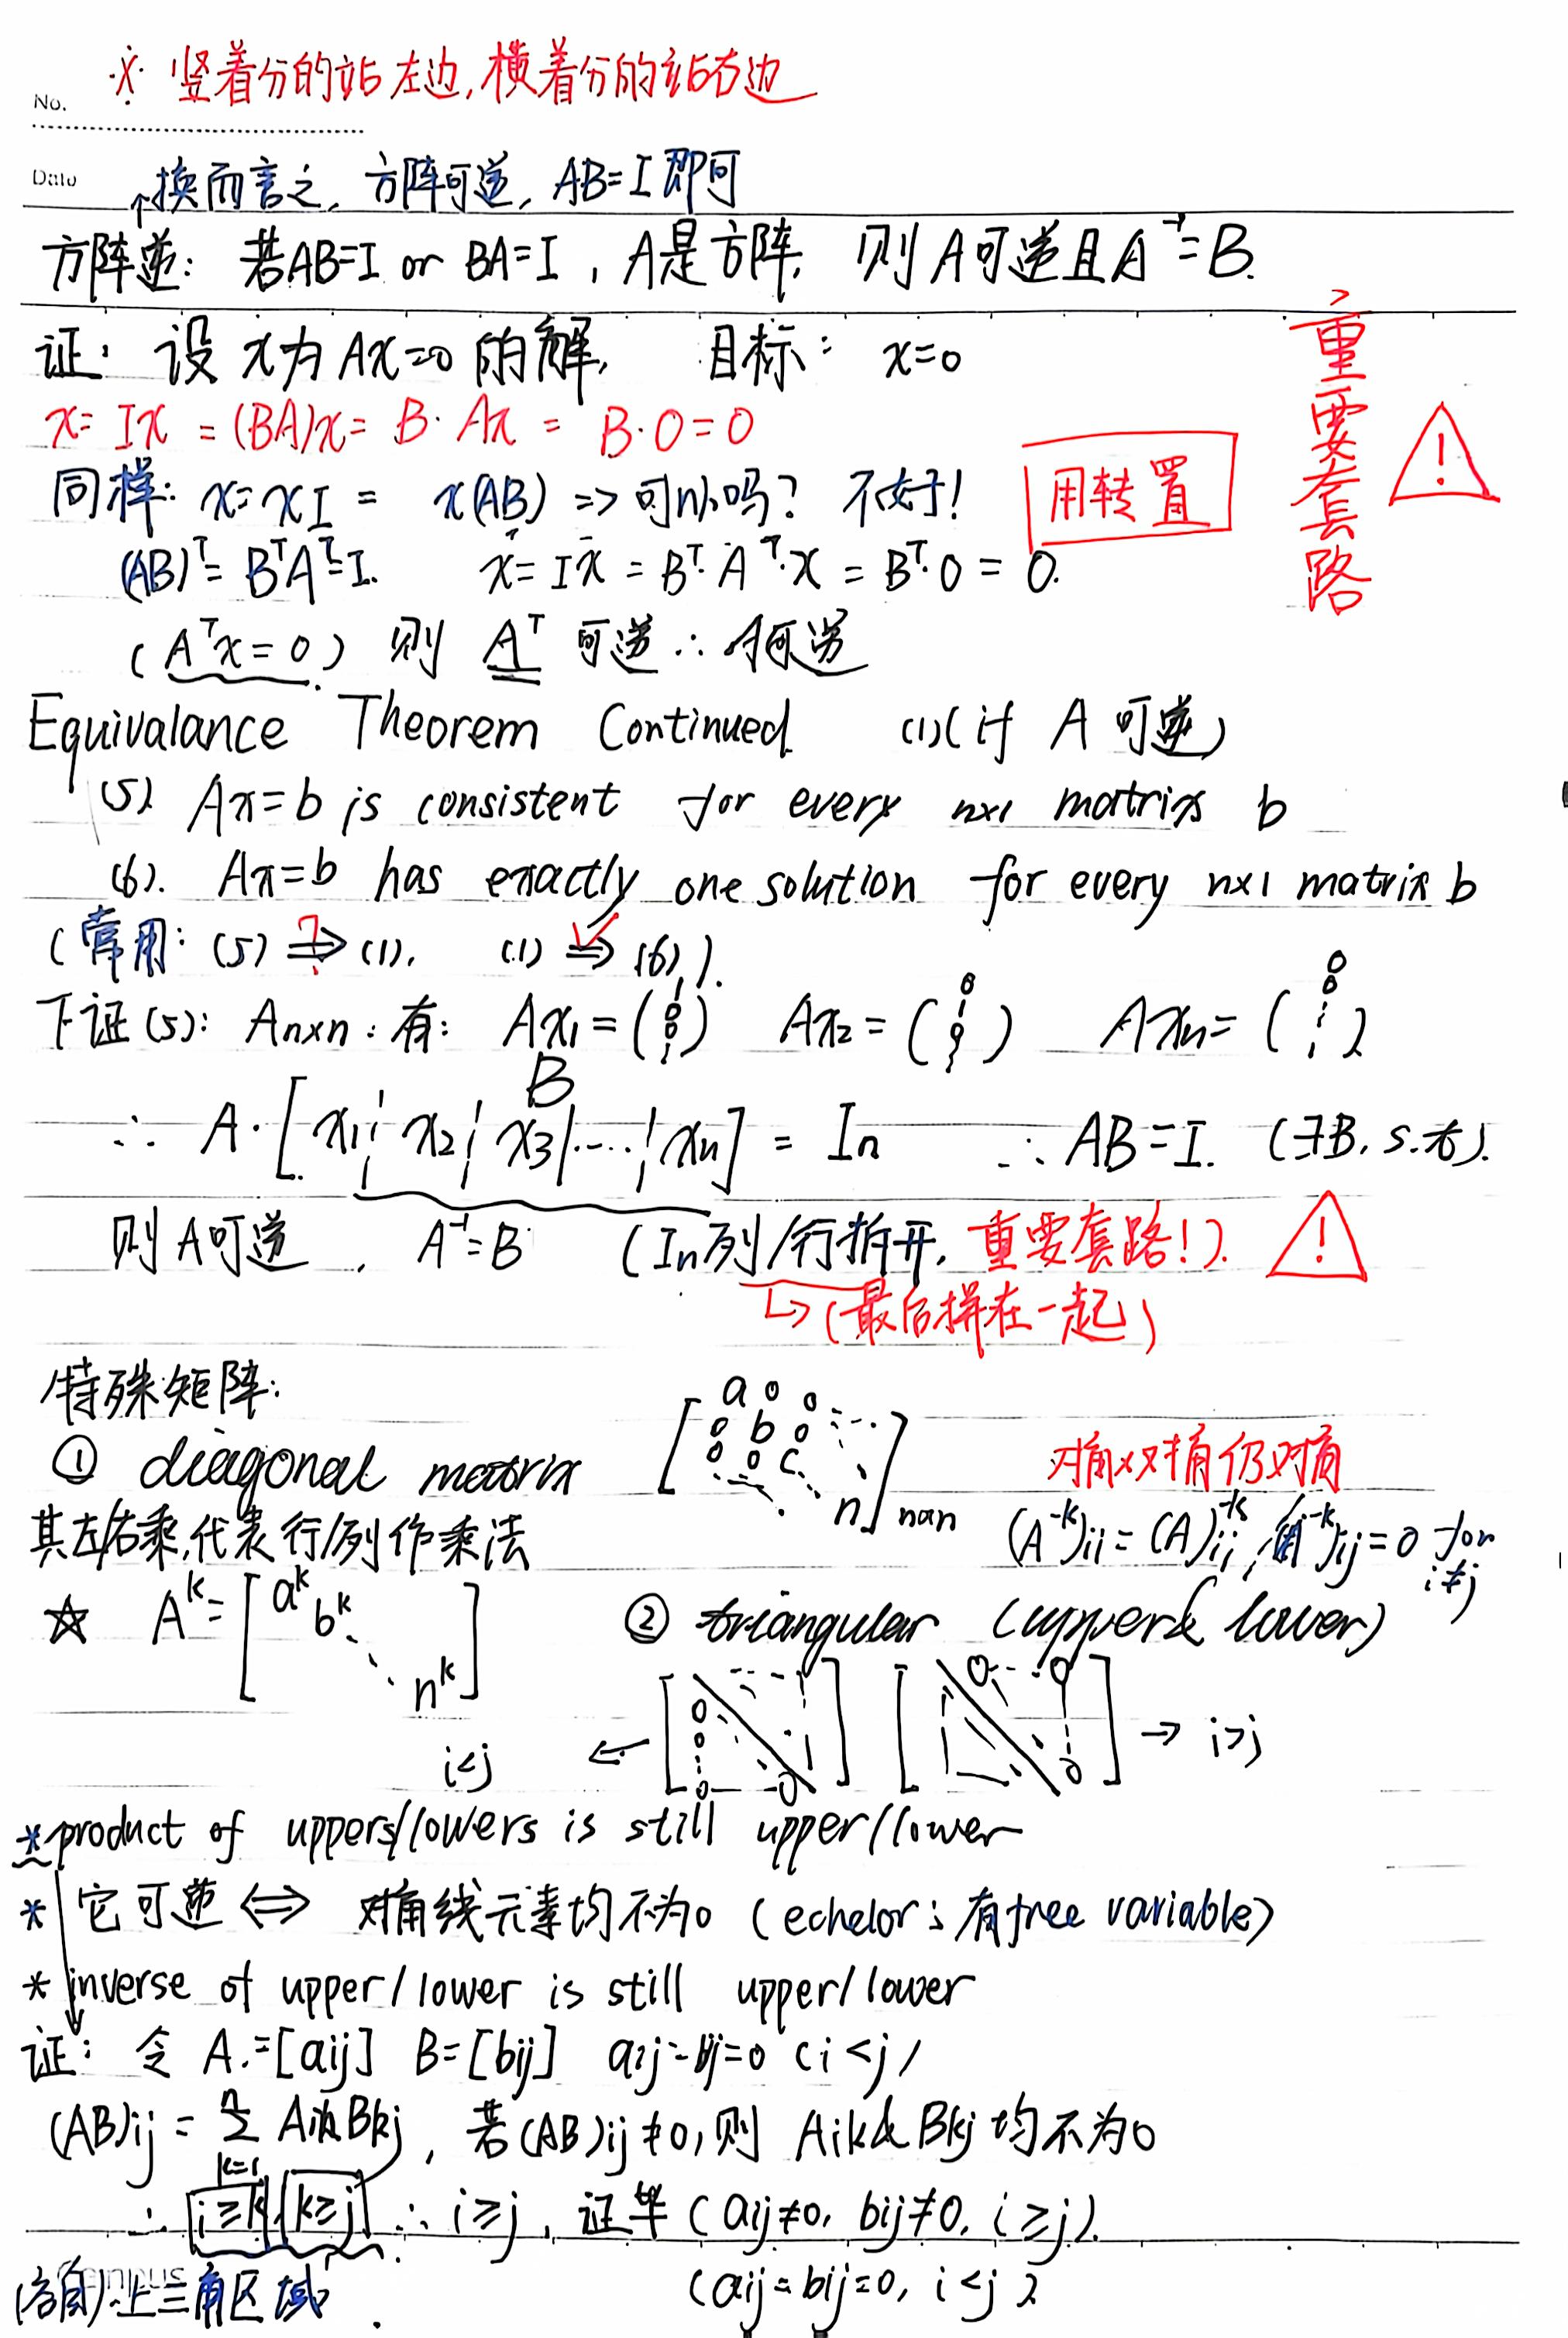 ※ 竖着分的站左边,横着分的站右边
No.
Date
↑换而言之, 方阵可逆, AB=I 即可
方阵逆: 若AB=I or BA=I, A是方阵, 则A可逆且A⁻¹=B.
证: 设x为Ax=0的解, 目标: x=0
x=Ix=(BA)x=B·Ax=B·0=0
同样: x=xI= x(AB) => 可以吗? 不太好!
用转置
重要套路
(AB)ᵀ=BᵀAᵀ=I. x=Ix=Bᵀ·Aᵀ·x=Bᵀ·0=0.
(Aᵀx=0) 则 Aᵀ 可逆 ∴ A可逆
Equivalance Theorem Continued (1)(if A 可逆)
(5) Ax=b is consistent for every nx1 matrix b
(6). Ax=b has exactly one solution for every nx1 matrix b
(常用: (5) ⇒ (1), (1) ⇒ (6)).
?
✓
下证(5): Anxn: 有: Ax₁=(1 0 0 ⋮) Ax₂=(0 1 0 ⋮) Axn=(0 0 ⋮ 1)
B
∴ A·[x₁ ¦ x₂ ¦ x₃ | ... ¦ xn] = In ∴ AB=I. (∃B, s.t.).
则A可逆, A⁻¹=B (In列/行拆开, 重要套路!).
!
↳(最后拼在一起)
特殊矩阵:
① diagonal matrix [a 0 0 0 b 0 0 0 c n]nxn
对角x对角仍对角
其左/右乘,代表行/列作乘法
(A⁻ᵏ)ii=(A)ii⁻ᵏ, (A⁻ᵏ)ij=0 for i≠j
☆ Aᵏ=[aᵏ bᵏ ⋱ nᵏ]
② triangular (upper& lower)
i<j ← [0 0 ⋮ 0 0] [0 ... 0 ⋮ 0] → i>j
*product of uppers/lowers is still upper/lower
* 它可逆 ⟺ 对角线元素均不为0 (echelor: 有free variable)
* inverse of upper/lower is still upper/lower
证: 令 A.=[aij] B=[bij] aij=bij=0 (i<j)
(AB)ij = Σⁿₖ₌₁ AikBkj, 若(AB)ij≠0,则 Aik& Bkj 均不为0
∴ i≥k k≥j ∴ i≥j, 证毕 (aij≠0, bij≠0, i≥j).
(各自)上三角区域. (aij=bij=0, i<j)